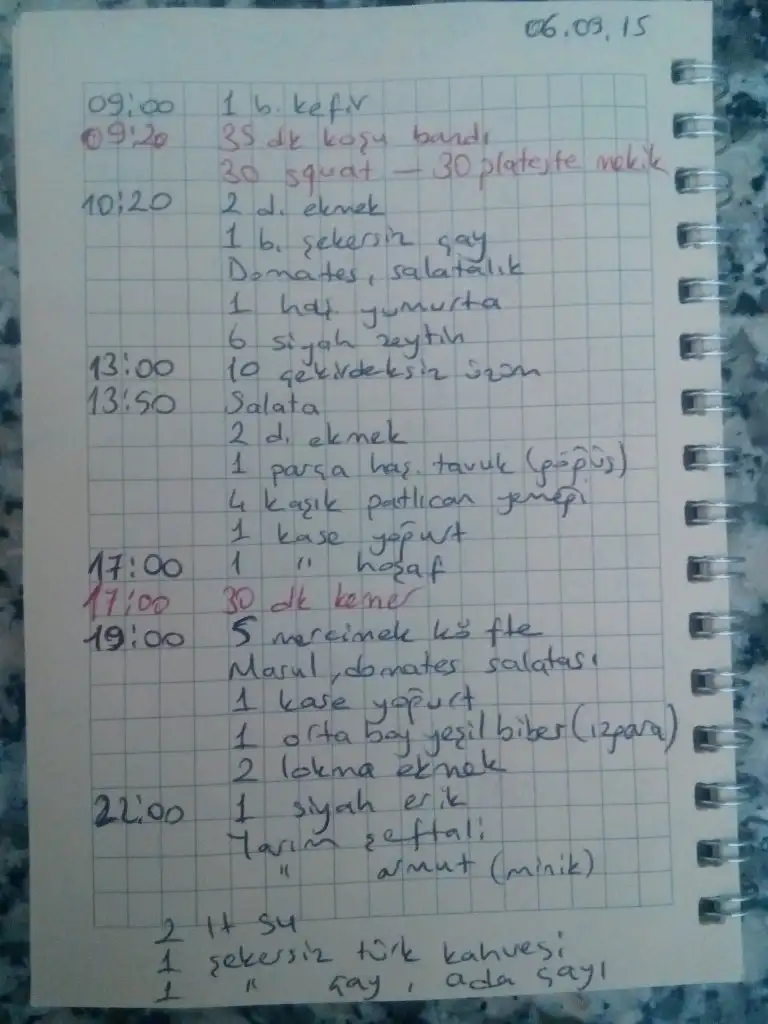 06.09.15
09:00 1 b. kefir
09:20 35 dk koşu bandı
30 squat – 30 plateste mekik
10:20 2 d. ekmek
1 b. şekersiz çay
Domates, salatalık
1 haş. yumurta
6 siyah zeytin
13:00 10 çekirdeksiz üzüm
13:50 Salata
2 d. ekmek
1 parça haş. tavuk (göğüs)
4 kaşık patlıcan yemeği
1 kase yoğurt
17:00 1 " hoşaf
17:00 30 dk kemer
19:00 5 mercimek köfte
Marul, domates salatası
1 kase yoğurt
1 orta boy yeşil biber (ızgara)
2 lokma ekmek
22:00 1 siyah erik
Yarım şeftali
" armut (minik)
2 lt su
1 şekersiz türk kahvesi
1 " çay, ada çayı